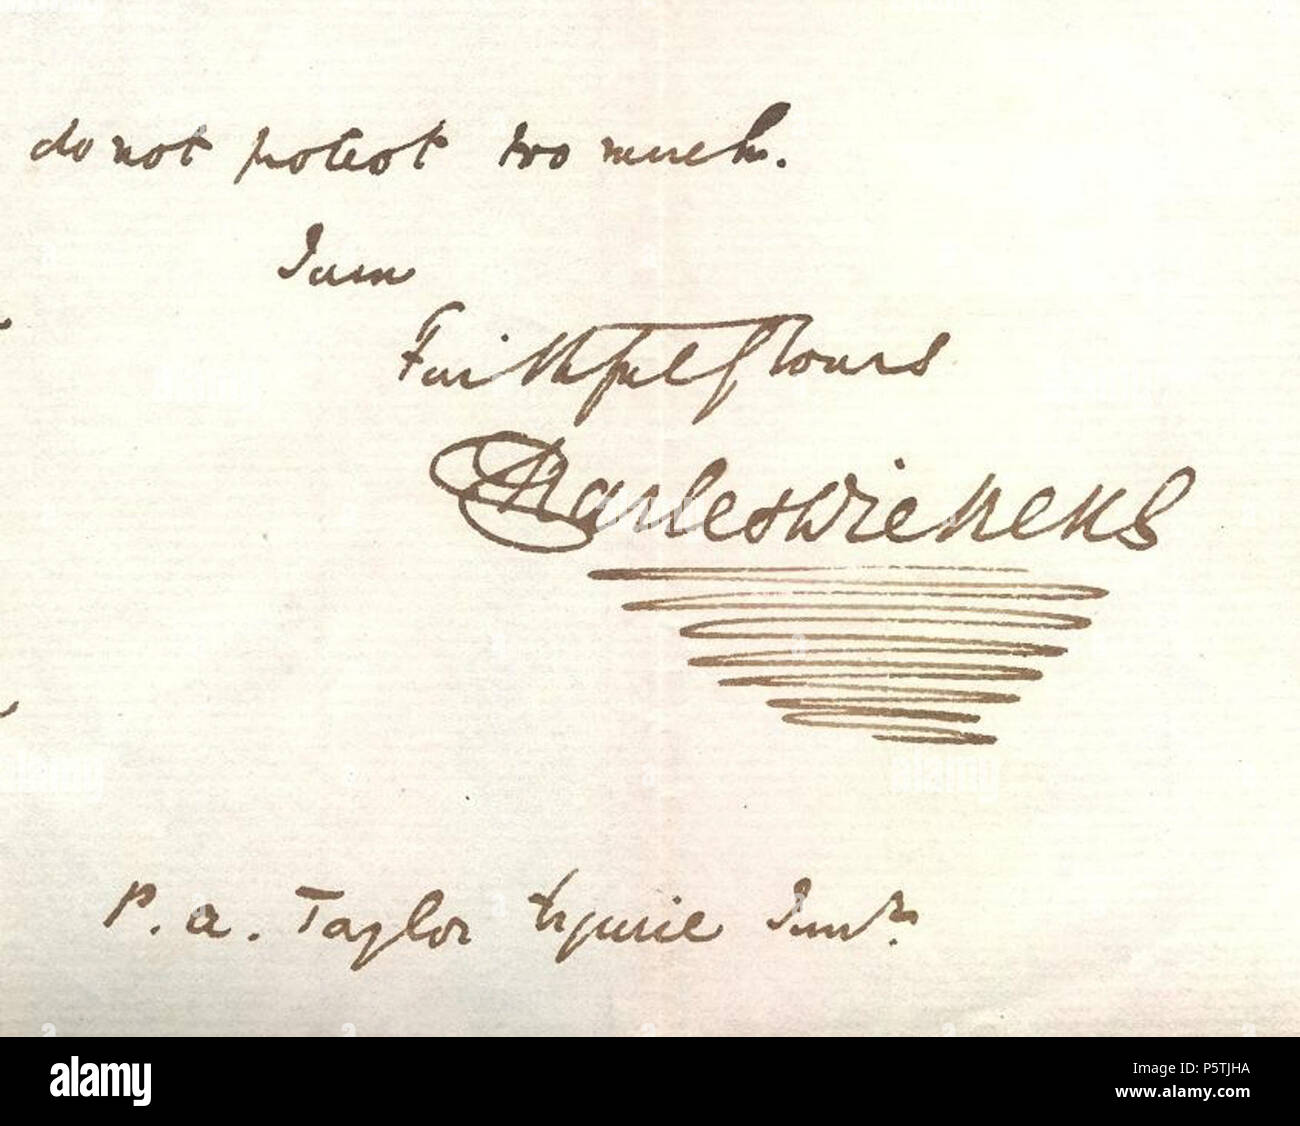 do not protest too much.
I am
Faithfully Yours
Charles Dickens
P. A. Taylor Esquire Junr.
alamy
alamy
Image ID: P5TJHA
www.alamy.com